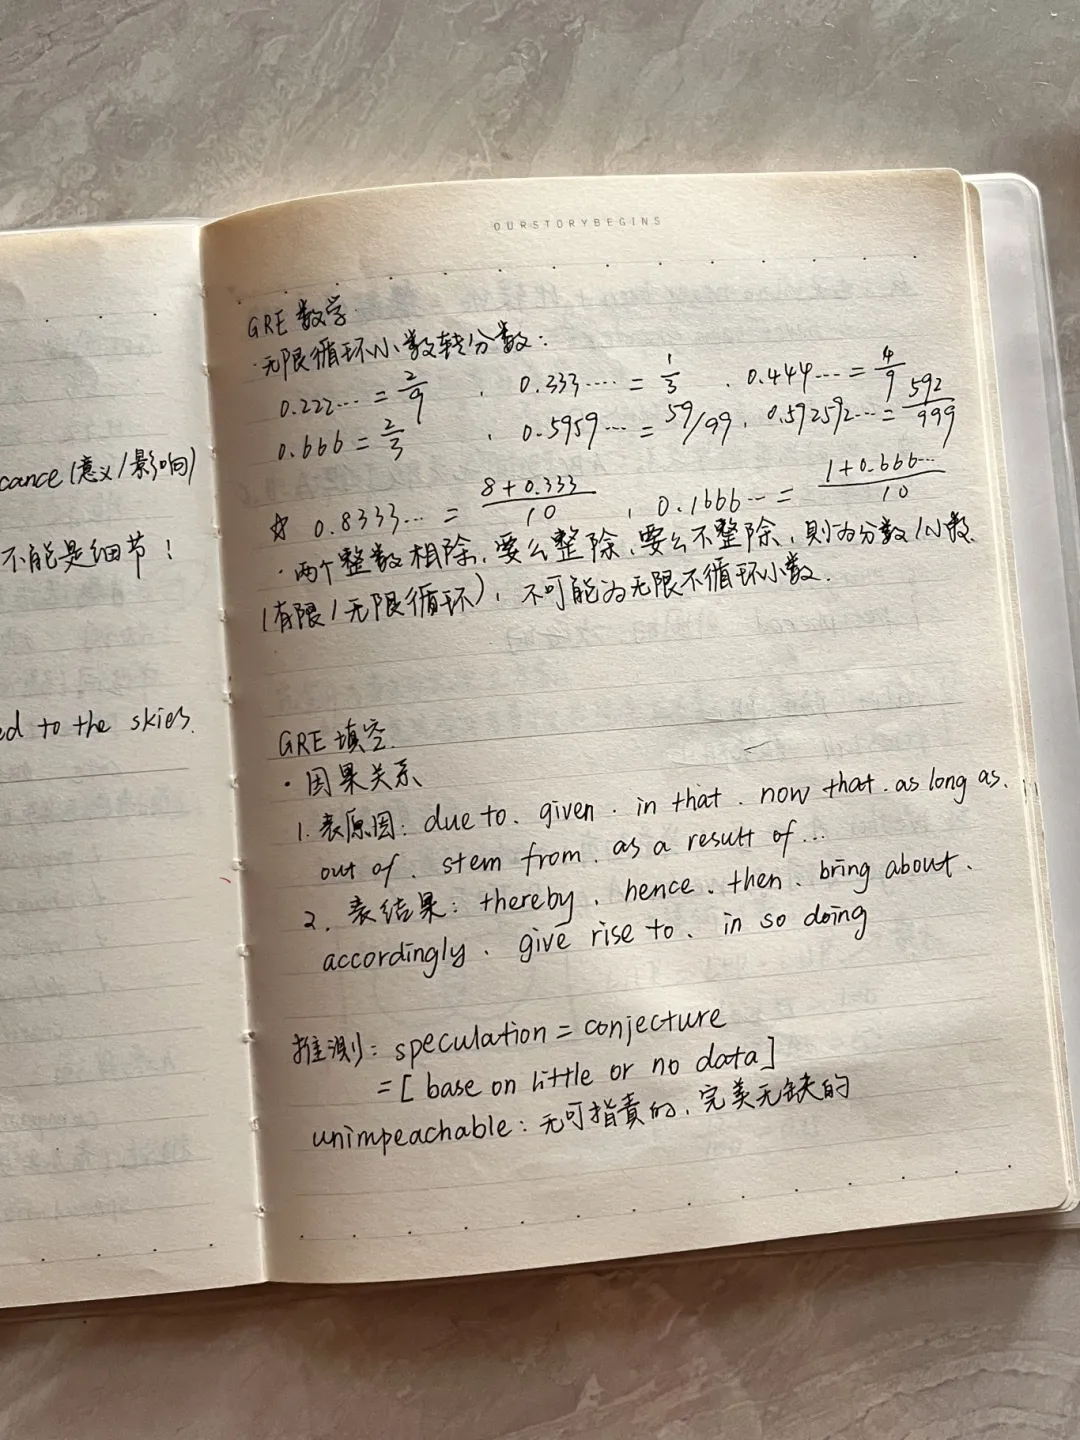 OURSTORYBEGINS
cance (意义/影响)
不能是细节！
ed to the skies.
GRE 数学.
·无限循环小数转分数：
0.222… = 2/9 , 0.333…… = 1/3 , 0.444…… = 4/9
0.666 = 2/3 , 0.5959… = 59/99 , 0.592592… = 592/999
☆ 0.8333… = (8+0.333)/10 , 0.1666… = (1+0.666…)/10
·两个整数相除，要么整除，要么不整除，则为分数/小数
(有限/无限循环)，不可能为无限不循环小数.
GRE 填空.
·因果关系
1. 表原因：due to、given、in that、now that、as long as、
out of、stem from、as a result of…
2. 表结果：thereby、hence、then、bring about、
accordingly、give rise to、in so doing
推测：speculation = conjecture
= [base on little or no data]
unimpeachable：无可指责的，完美无缺的